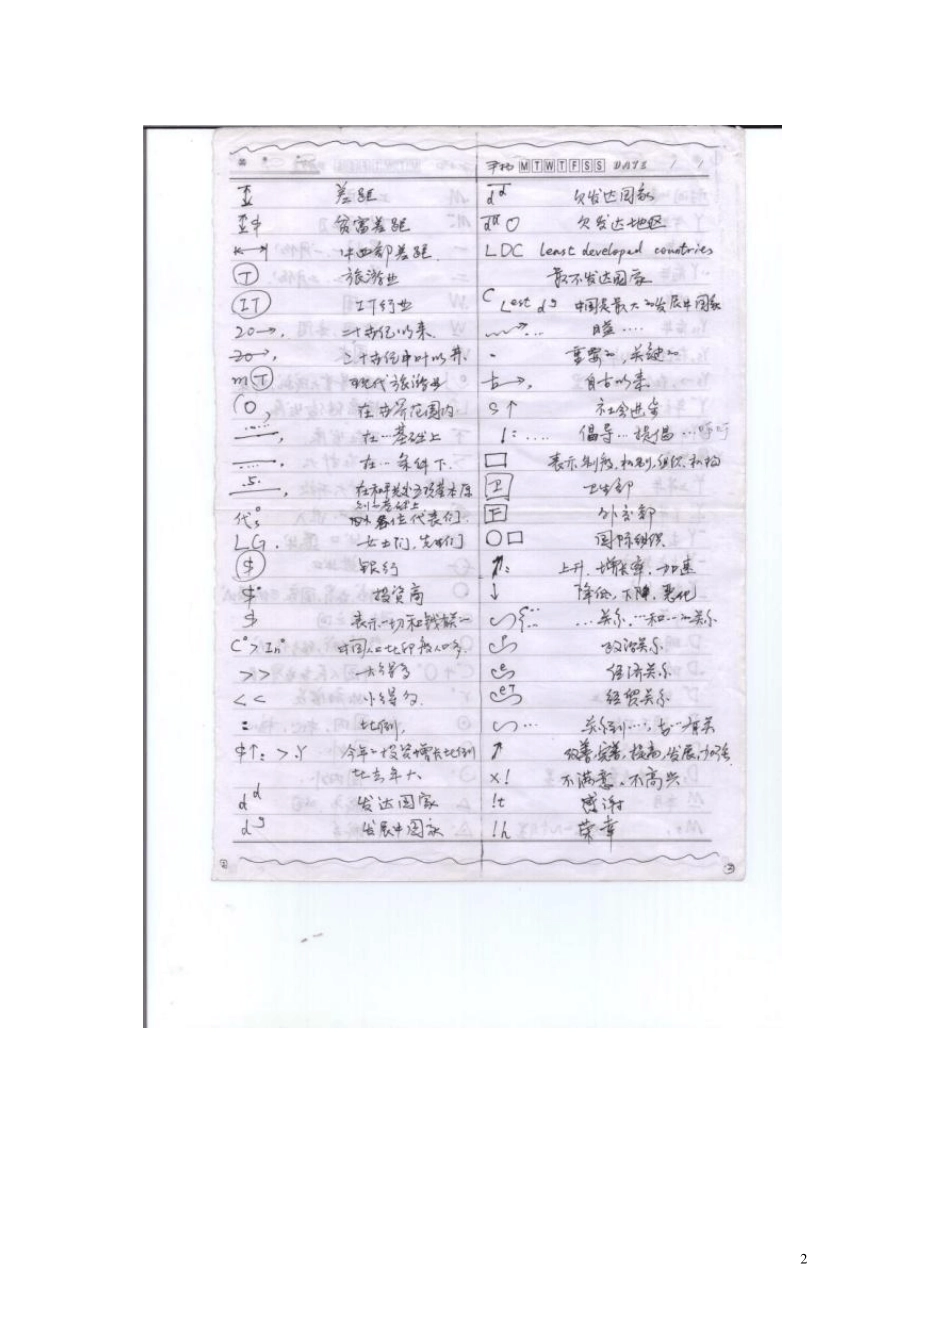 MTWTFSS DATE / /
差距
贫富差距
中西部差距
T 旅游业
IT IT行业
20→, 二十世纪以来.
20→, 二十世纪中叶以来.
m T 现代旅游业
(O, 在世界范围内
....., 在…基础上
....., 在…条件下.
.5., 在和平共处五项基本原
则的基础上
代°s 各位代表们.
LG. 女士们,先生们
$ 银行
$° 投资商
$ 表示一切和钱有关的
C°> In° 中国人口比印度人口多.
>> 大得多
<< 小得多.
: 比例,
$↑: >.Y 今年的投资增长比例
比去年大
d d 发达国家
d g 发展中国家
d d 欠发达国家
dd O 欠发达地区
LDC least developed countries
最不发达国家
C Lest dg 中国是最大的发展中国家
... 掩盖....
重要的,关键的
古→, 自古以来
S↑ 社会进步
!: .... 倡导…提倡…呼吁
□ 表示制度,机制,组织,机构
卫 卫生部
F 外交部
○□ 国际组织
↑: 上升,增长率,加速
↓ 降低,下降,恶化
...关系,…和…的关系
P 政治关系
e 经济关系
eT 经贸关系
... 关系到…,与…有关
↑ 改善,完善,提高,发展,加强
×! 不满意,不高兴
!t 感谢
!h 荣幸
2